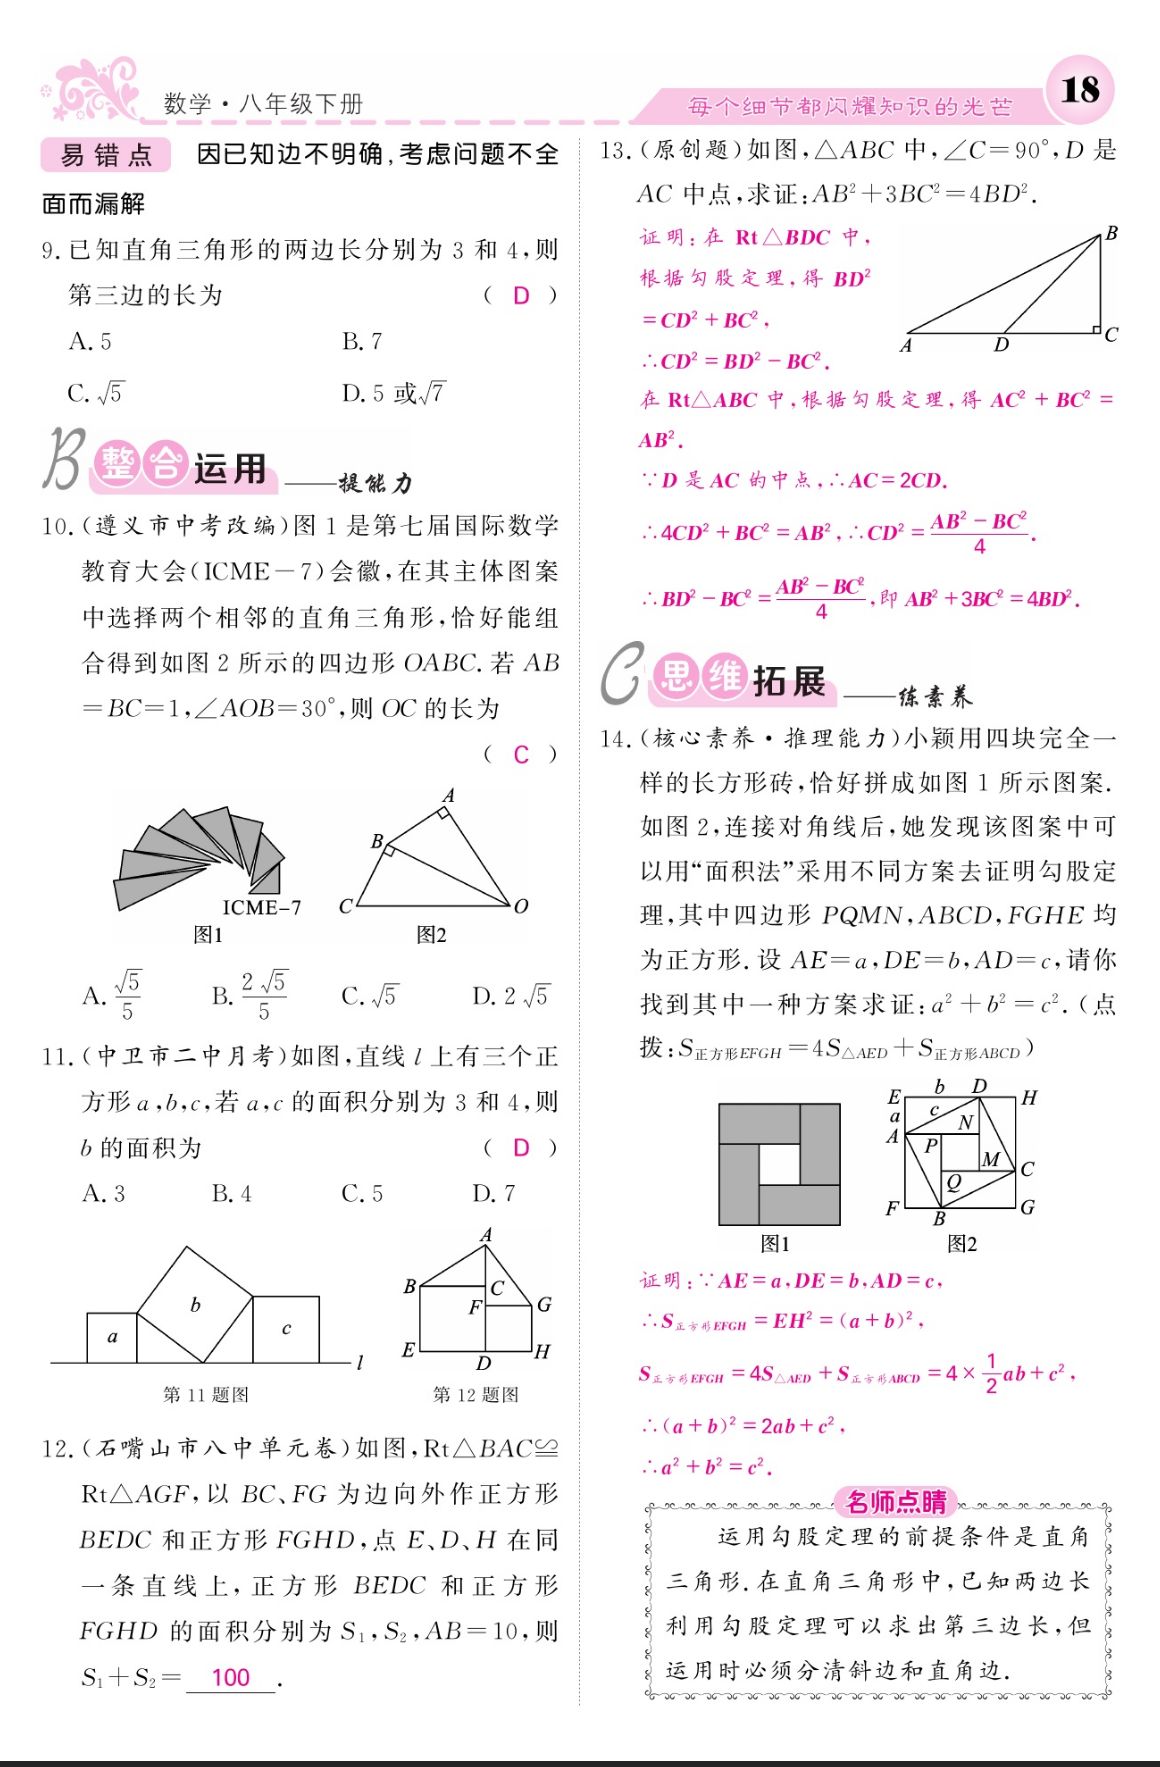 数学·八年级下册
每个细节都闪耀知识的光芒
18
易错点 因已知边不明确,考虑问题不全
面而漏解
9.已知直角三角形的两边长分别为 3 和 4,则
第三边的长为 ( D )
A. 5 B. 7
C. √5 D. 5 或√7
B 整合运用 ——提能力
10.(遵义市中考改编)图 1 是第七届国际数学
教育大会(ICME-7)会徽,在其主体图案
中选择两个相邻的直角三角形,恰好能组
合得到如图 2 所示的四边形 OABC. 若 AB
=BC=1,∠AOB=30°,则 OC 的长为
( C )
A
B
C
O
ICME-7
图1 图2
A. √5/5 B. 2√5/5 C. √5 D. 2√5
11.(中卫市二中月考)如图,直线 l 上有三个正
方形 a,b,c,若 a,c 的面积分别为 3 和 4,则
b 的面积为 ( D )
A. 3 B. 4 C. 5 D. 7
a b c l
第 11 题图
A
B C
F G
E D H
第 12 题图
12.(石嘴山市八中单元卷)如图,Rt△BAC≌
Rt△AGF,以 BC、FG 为边向外作正方形
BEDC 和正方形 FGHD,点 E、D、H 在同
一条直线上,正方形 BEDC 和正方形
FGHD 的面积分别为 S₁,S₂,AB=10,则
S₁+S₂= 100 .
13.(原创题)如图,△ABC 中,∠C=90°,D 是
AC 中点,求证:AB²+3BC²=4BD².
证明:在 Rt△BDC 中,
根据勾股定理,得 BD²
=CD²+BC²,
∴CD²=BD²-BC².
B
A D C
在 Rt△ABC 中,根据勾股定理,得 AC²+BC²=
AB².
∵D 是 AC 的中点,∴AC=2CD.
∴4CD²+BC²=AB²,∴CD²=(AB²-BC²)/4.
∴BD²-BC²=(AB²-BC²)/4,即 AB²+3BC²=4BD².
C 思维拓展 ——练素养
14.(核心素养·推理能力)小颖用四块完全一
样的长方形砖,恰好拼成如图 1 所示图案.
如图 2,连接对角线后,她发现该图案中可
以用“面积法”采用不同方案去证明勾股定
理,其中四边形 PQMN,ABCD,FGHE 均
为正方形. 设 AE=a,DE=b,AD=c,请你
找到其中一种方案求证:a²+b²=c².(点
拨:S正方形EFGH=4S△AED+S正方形ABCD)
E b D H
a c N
A P
M C
Q
F B G
图1 图2
证明:∵AE=a,DE=b,AD=c,
∴S正方形EFGH=EH²=(a+b)²,
S正方形EFGH=4S△AED+S正方形ABCD=4×1/2ab+c²,
∴(a+b)²=2ab+c²,
∴a²+b²=c².
名师点睛
运用勾股定理的前提条件是直角
三角形. 在直角三角形中,已知两边长
利用勾股定理可以求出第三边长,但
运用时必须分清斜边和直角边.